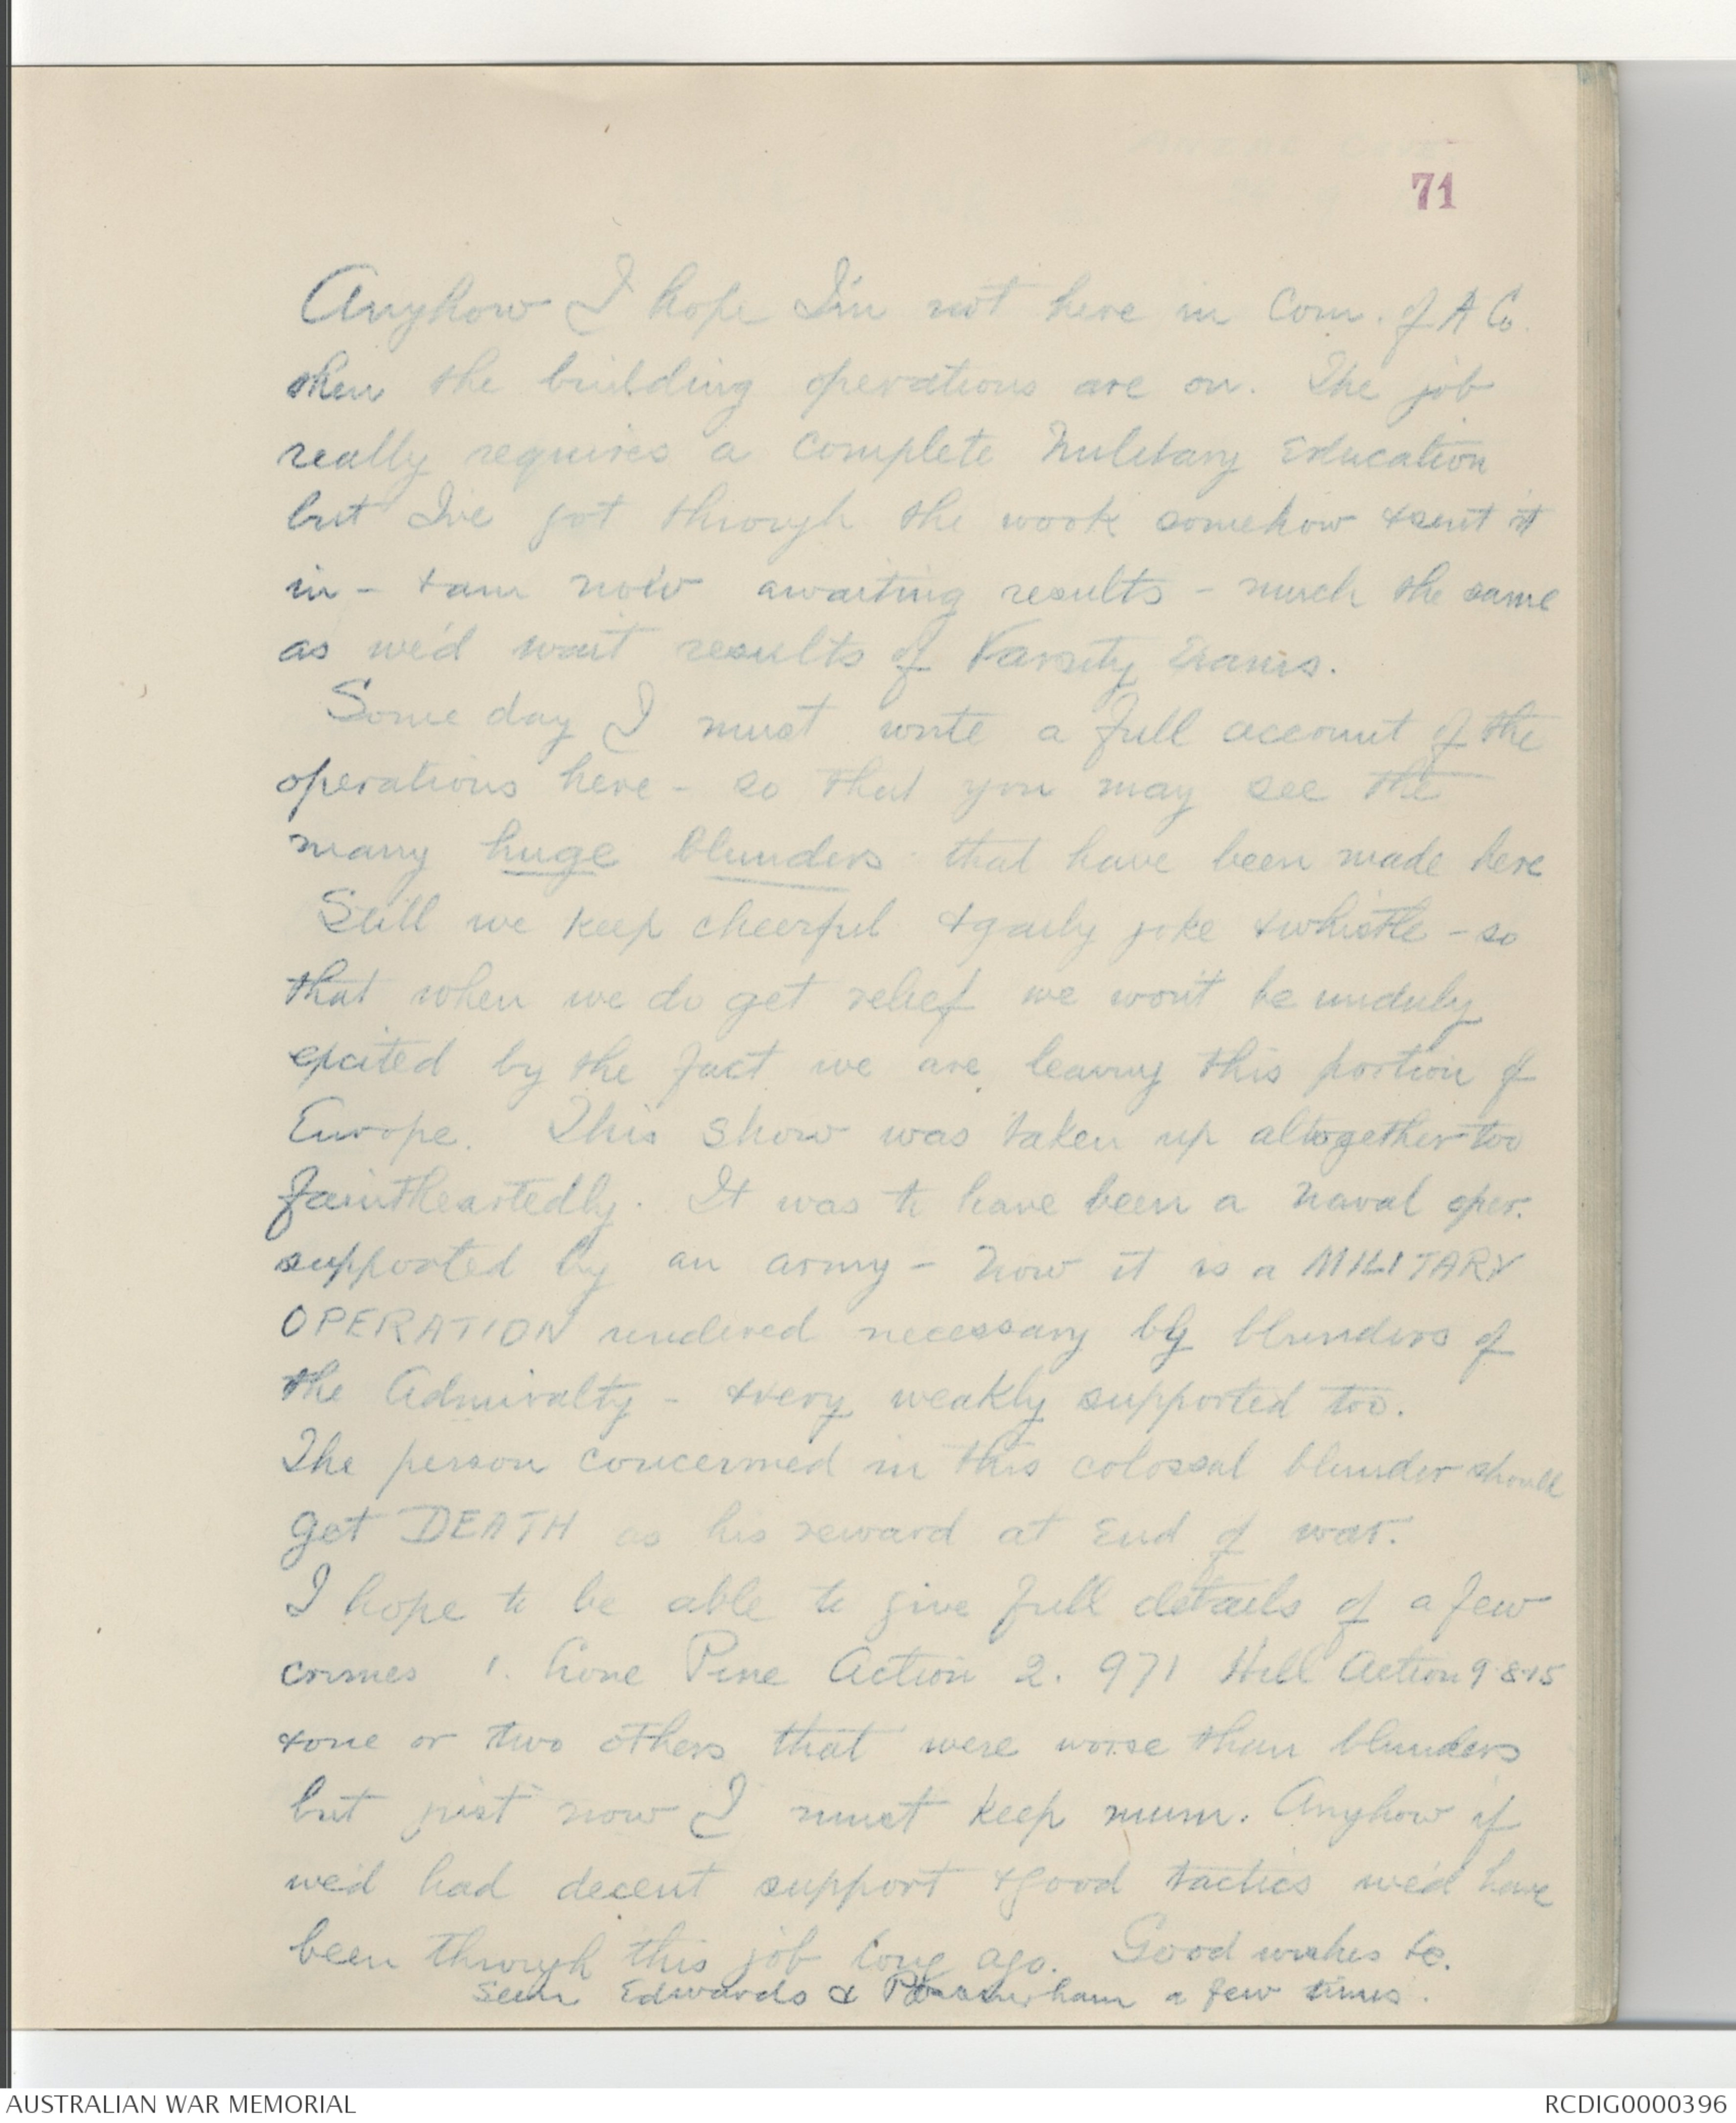 71
Anyhow I hope I'm not here in Com. of A Co.
when the building operations are on. The job
really requires a complete Military Education
but I've got through the work somehow & sent it
in - & am now awaiting results - much the same
as we'd wait results of Varsity Exams.
Some day I must write a full account of the
operations here - so that you may see the
many huge blunders that have been made here
Still we keep cheerful & gaily joke & whistle - so
that when we do get relief we won't be unduly
excited by the fact we are leaving this portion of
Europe. This show was taken up altogether too
faintheartedly. It was to have been a naval oper.
supported by an army - now it is a MILITARY
OPERATION rendered necessary by blunders of
the Admiralty - & very weakly supported too.
The person concerned in this colossal blunder should
get DEATH as his reward at End of war.
I hope to be able to give full details of a few
crimes 1. Lone Pine Action 2. 971 Hill Action 9.8.15
& one or two others that were worse than blunders
but just now I must keep mum. Anyhow if
we'd had decent support & good tactics we'd have
been through this job long ago. Good wishes &c.
Seen Edwards & a few times.
AUSTRALIAN WAR MEMORIAL
RCDIG0000396